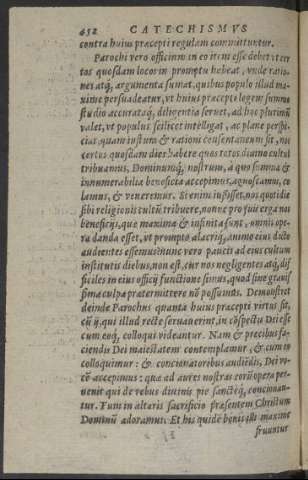 452 CATECHISMVS
contra huius præcepti regulam committuntur.
Parochi vero officium in eo item esse debet vt cer
tos quosdam locos in promptu habeat, vnde ratio-
nes atq́, argumenta sumat, quibus populo illud ma-
xime persuadeatur, vt huius præcepti legem summo
studio accurataq́, diligentia seruet, ad hoc plurimũ
valet, vt populus scilicet intelligat, ac plane perspi-
ciat quam iustum & rationi consentaneum sit, nos
certos quosdam dies habere quos totos diuino cultui
tribuamus, Dominumq́, nostrum, à quo summa &
innumerabilia beneficia accepimus, agnoscamus, co
lamus, & veneremur. Si enim iußisset, nos quotidie
sibi religionis cultũ tribuere, nonne pro suis erga nos
beneficijs, quæ maxima & infinita sunt, omnis ope-
ra danda esset, vt prompto alacriq́, animo eius dicto
audientes essemus? nunc vero paucis ad eius cultum
institutis diebus, non est, cur nos negligentes atq́, dif
ficiles in eius officij functione simus, quod sine grauis
sima culpa prætermittere nõ possumus. Demonstret
deinde Parochus quanta huius præcepti virtus sit,
cũ ij, qui illud recte seruauerint, in cõspectu Dei esse
cum eoq́, colloqui videantur. Nam & precibus fa-
ciendis Dei maiestatem contemplamur, & cum eo
colloquimur: & concionatoribus audiẽdis, Dei vo-
cẽ accipimus: quæ ad aures nostras eorũ opera per-
uenit qui de rebus diuinis pie sancteq́, concionan-
tur. Tum in altaris sacrificio præsentem Christum
Dominũ adoramus. Et his quidẽ bonis illi maxime
fruuntur